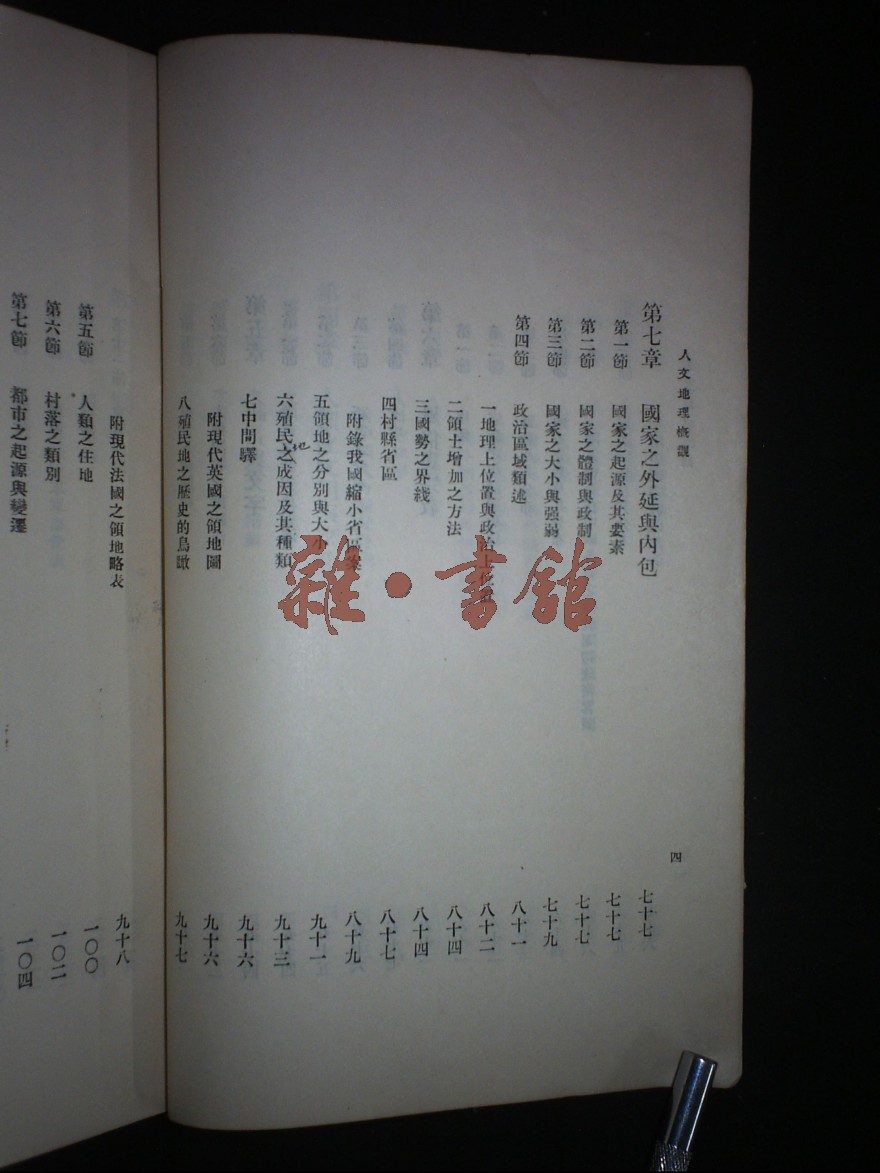 人文地理槪觀
四
第七章 國家之外延與內包 七十七
第一節 國家之起源及其要素 七十七
第二節 國家之體制與政制 七十七
第三節 國家之大小與强弱 七十九
第四節 政治區域類述 八十一
一地理上位置與政治上位置 八十二
二領土增加之方法 八十四
三國勢之界綫 八十四
四村縣省區 八十七
附錄我國縮小省區案 八十九
五領地之分別與大小 九十一
六殖民之成因及其種類 九十三
七中間驛 九十六
附現代英國之領地圖 九十六
八殖民地之歷史的鳥瞰 九十七
附現代法國之領地略表 九十八
第五節 人類之住地 一〇〇
第六節 村落之類別 一〇二
第七節 都市之起源與變遷 一〇四
雜·書館